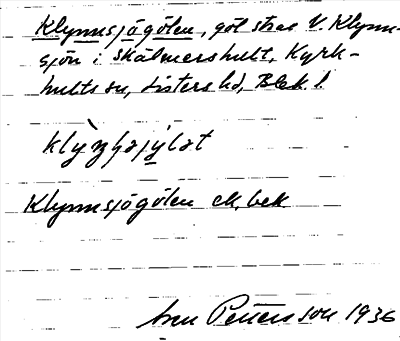 Klynnsjögölen, göl strax V. Klynn-
sjön i Skälmershult, Kyrk-
hults sn, Listers hd, Blek. l.
Klynnsjögölen ek. bek.
Petterson 1936